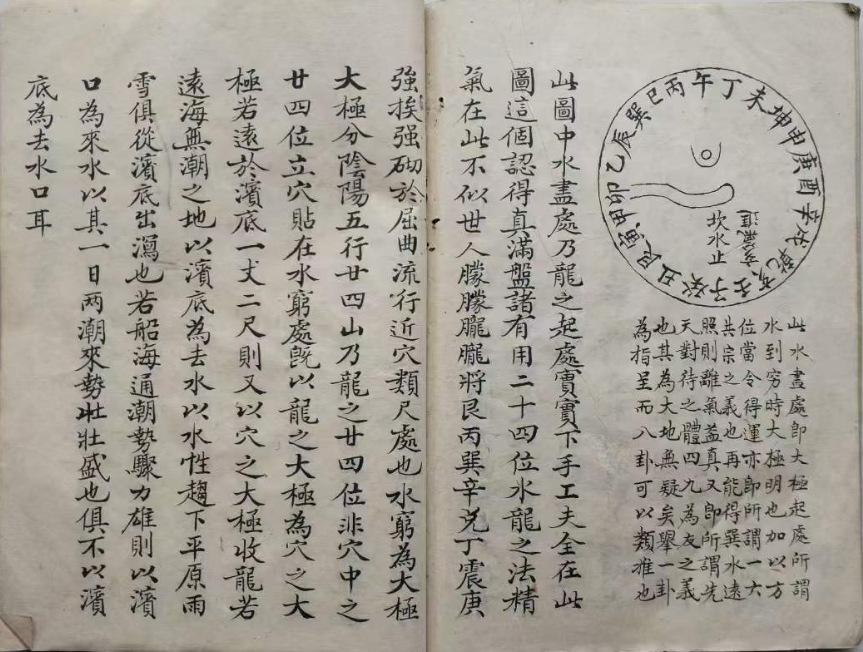 午丁未坤申庚酉辛戌乾亥壬子癸丑艮寅甲卯乙辰巽巳丙
坎水止
此水盡處即大極起處所謂
水到窮時大極明也加以方
位當令得運亦即所謂一六
共宗之義也再能得巽水遠
照則離氣益真又即所謂先
天對待之體四九為友之義
也其為大地無疑矣舉一卦
為指呈而八卦可以類推也
此圖中水盡處乃龍之起處實實下手工夫全在此
圖這個認得真滿盤諸有用二十四位水龍之法精
氣在此不似世人朦朦朧朧將艮丙巽辛兌丁震庚
強挨强砌於屈曲流行近穴類尺處也水窮為大極
大極分陰陽五行廿四山乃龍之廿四位非穴中之
廿四位立穴貼在水窮處旣以龍之大極為穴之大
極若遠於濱底一丈二尺則又以穴之大極收龍若
遠海無潮之地以濱底為去水以水性趨下平原雨
雪俱從濱底出瀉也若船海通潮勢驟力雄則以濱
口為來水以其一日兩潮來勢壯壯盛也俱不以濱
底為去水口耳